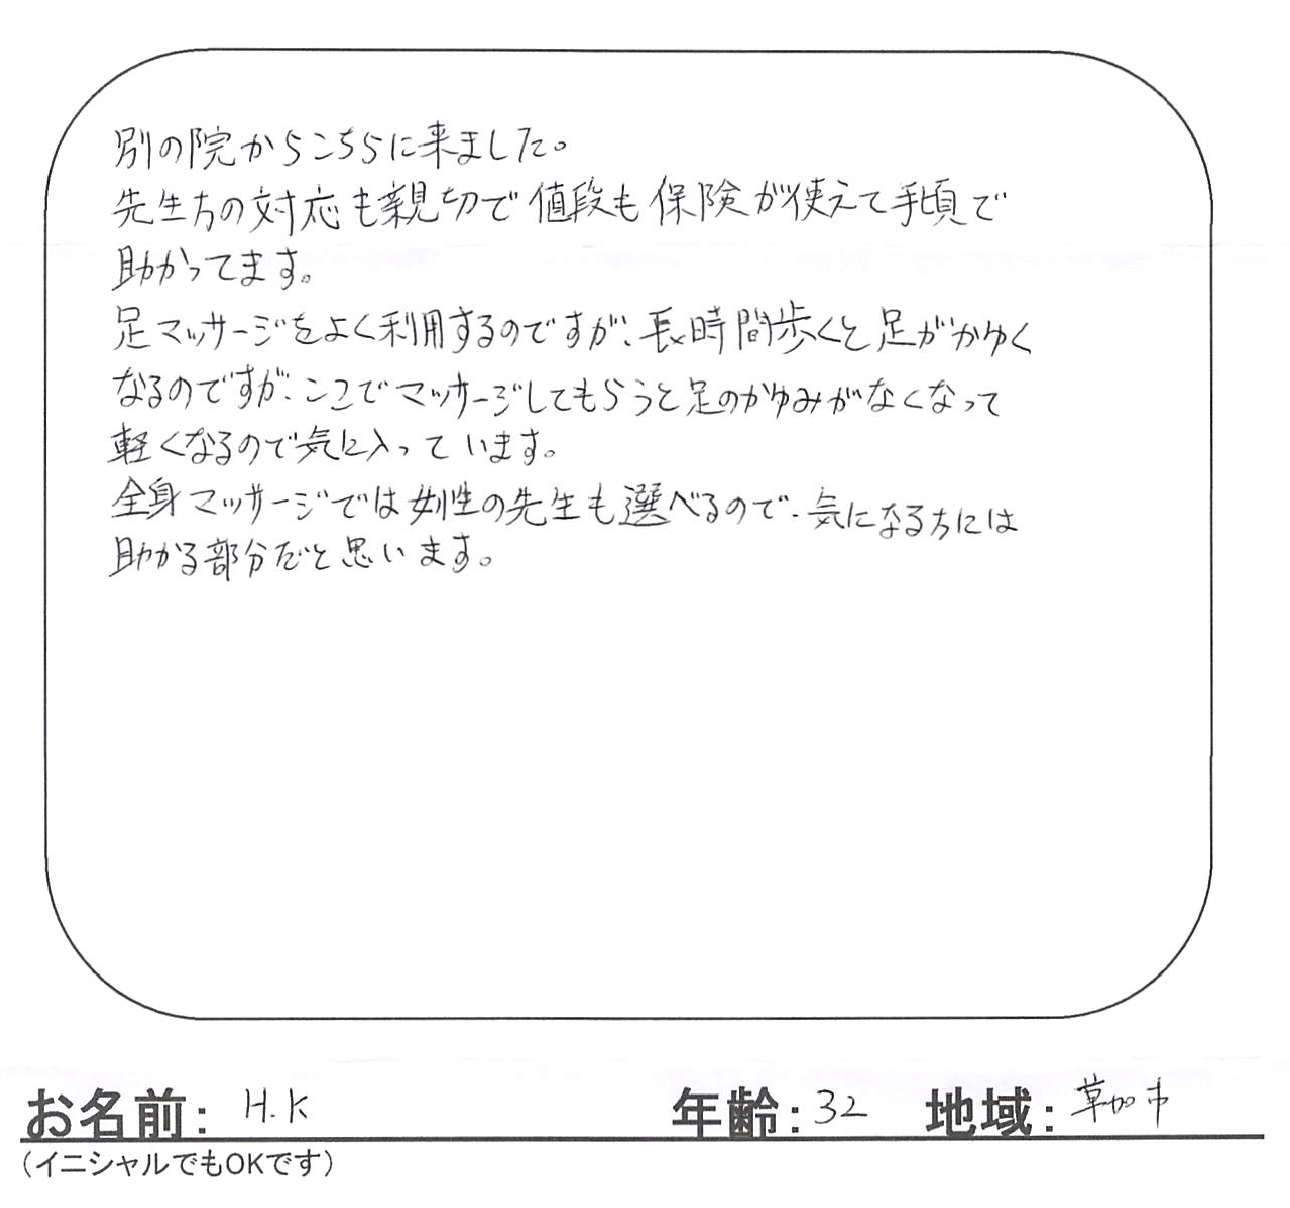 別の院からこちらに来ました。
先生方の対応も親切で値段も保険が使えて手頃で
助かってます。
足マッサージをよく利用するのですが、長時間歩くと足がかゆく
なるのですが、ここでマッサージしてもらうと足のかゆみがなくなって
軽くなるので気に入っています。
全身マッサージでは女性の先生も選べるので、気になる方には
助かる部分だと思います。
お名前: H.K 年齢: 32 地域: 草加市
(イニシャルでもOKです)